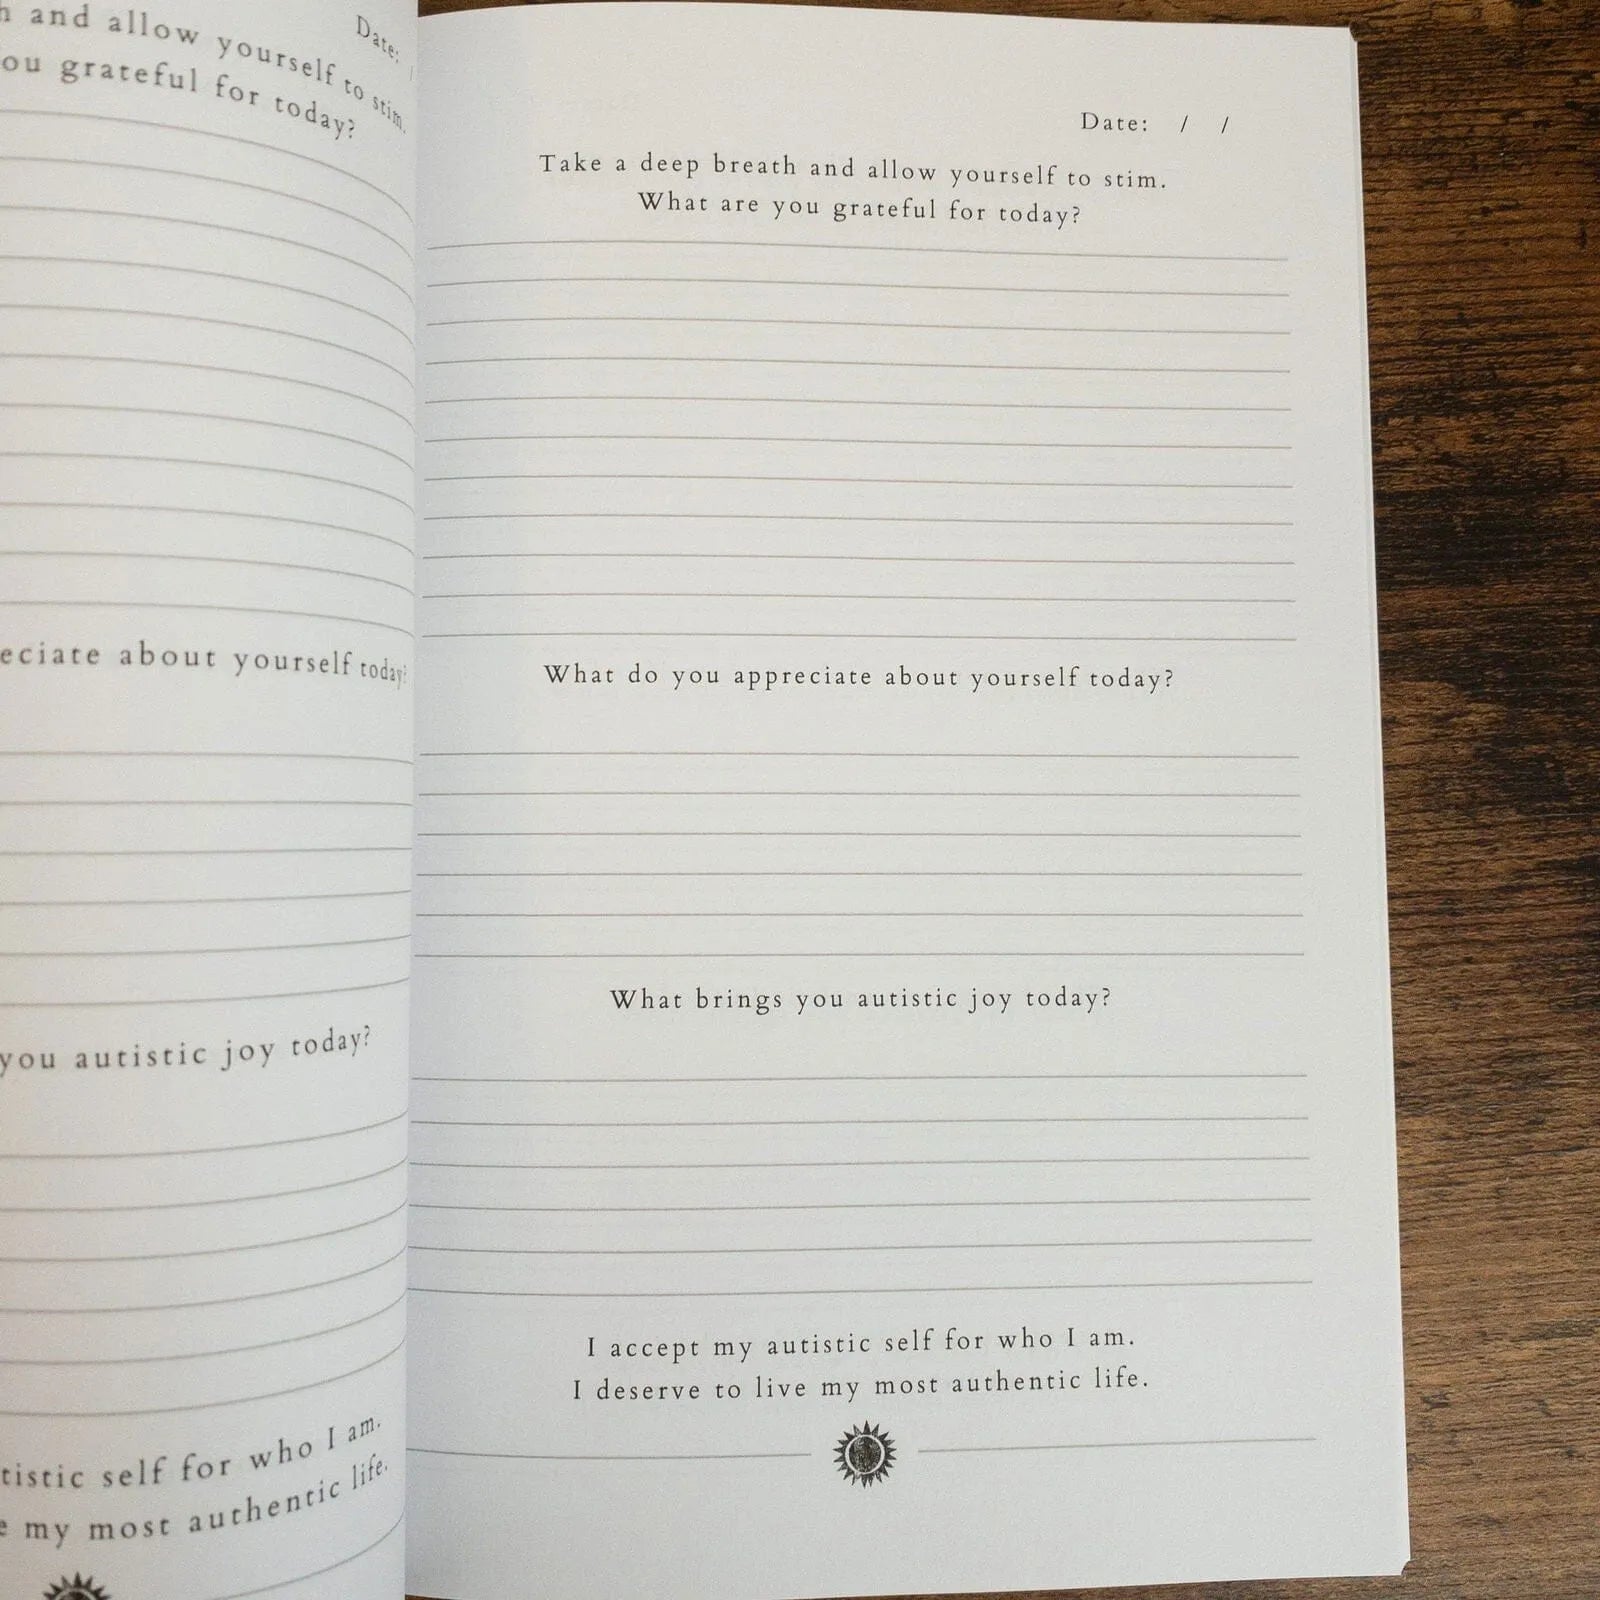 Date: /
and allow yourself to stim.
ou grateful for today?
eciate about yourself today?
you autistic joy today?
tistic self for who I am.
e my most authentic life.
Date: / /
Take a deep breath and allow yourself to stim.
What are you grateful for today?
What do you appreciate about yourself today?
What brings you autistic joy today?
I accept my autistic self for who I am.
I deserve to live my most authentic life.